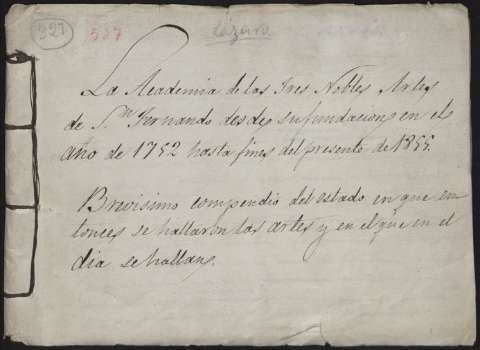 327
537
Lázaro
La Academia de las Tres Nobles Artes
de S.n Fernando desde su fundacion, en el
año de 1752 hasta fines del presente de 1855.
Brevisimo compendio del estado en que en
tonces se hallaron las artes y en el que en el
dia se hallan.